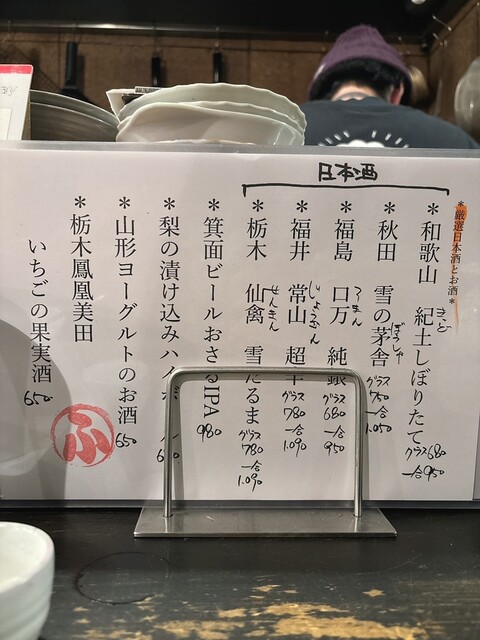 日本酒
*厳選日本酒とお酒*
*和歌山 紀土しぼりたて グラス680 一合950
きっど
*秋田 雪の茅舎 グラス750 一合1.050
ぼうしゃ
*福島 口万 純 グラス680 一合950
ろまん
*福井 常山 超辛 グラス780 一合1.090
じょうざん
*栃木 仙禽 雪だるま グラス780 一合1.090
せんきん
*箕面ビールおさるIPA 980
*梨の漬け込みハイボール
*山形ヨーグルトのお酒 650
*栃木鳳凰美田
いちごの果実酒 650
ふ